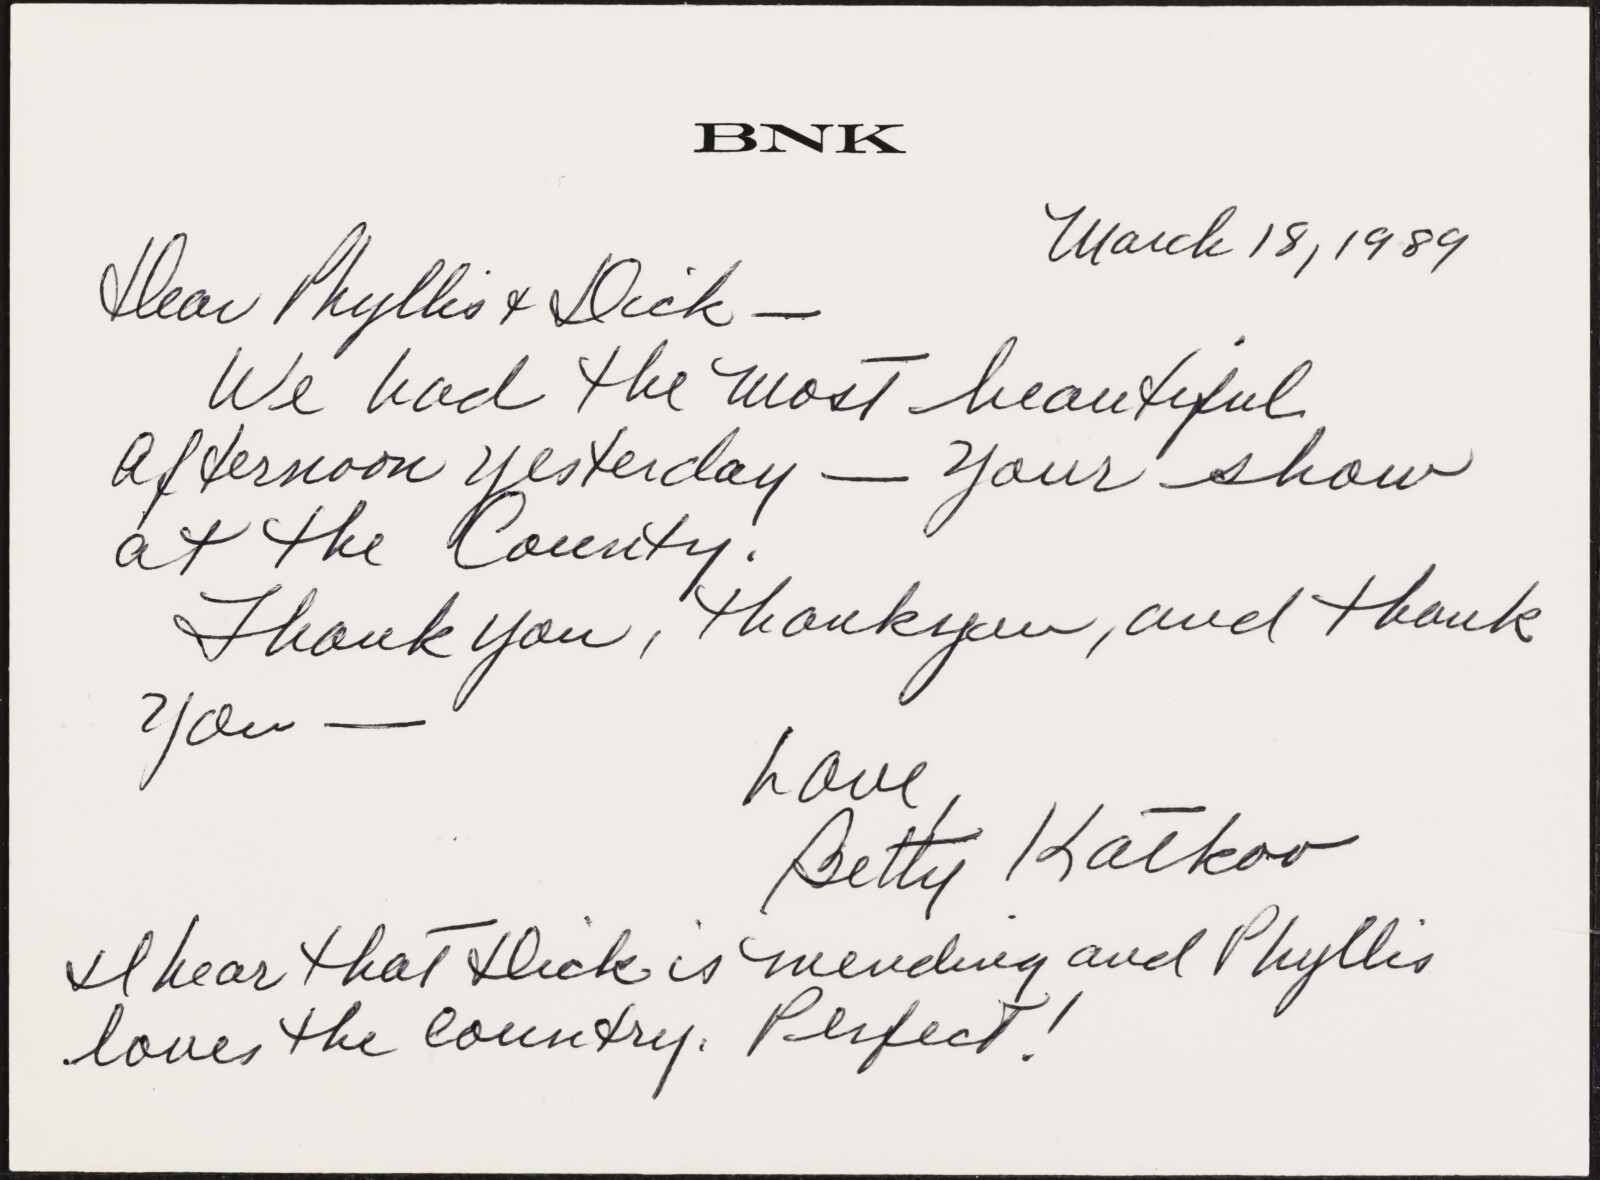 BNK
March 18, 1989
Dear Phyllis & Dick —
We had the most beautiful
afternoon yesterday — your show
at the County.
Thank you, thank you, and thank
you —
Love,
Betty Katkov
I hear that Dick is mending and Phyllis
loves the country. Perfect!